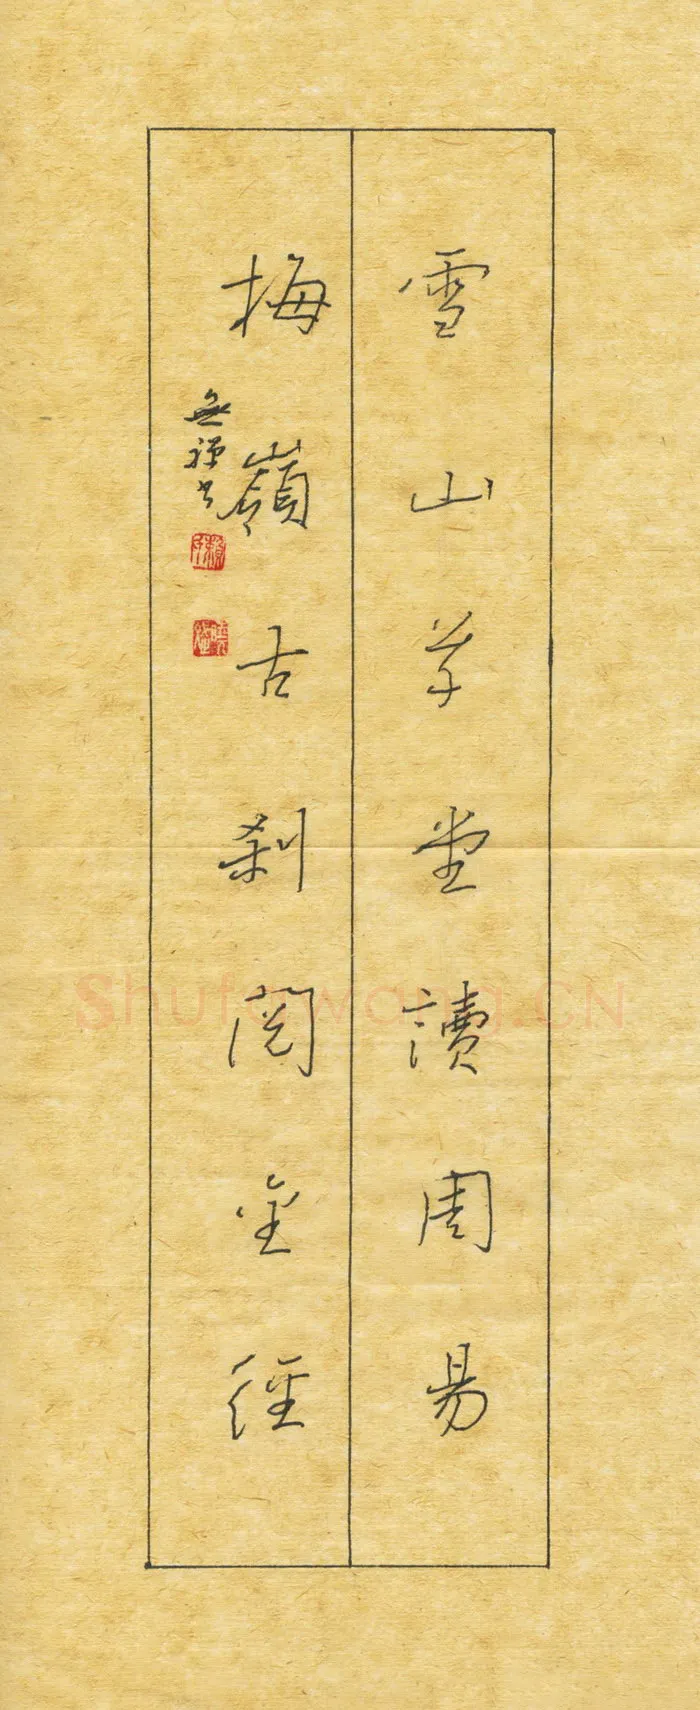 雪山草堂讀周易
梅嶺古刹閱金經
無禪書
Shufawang.CN